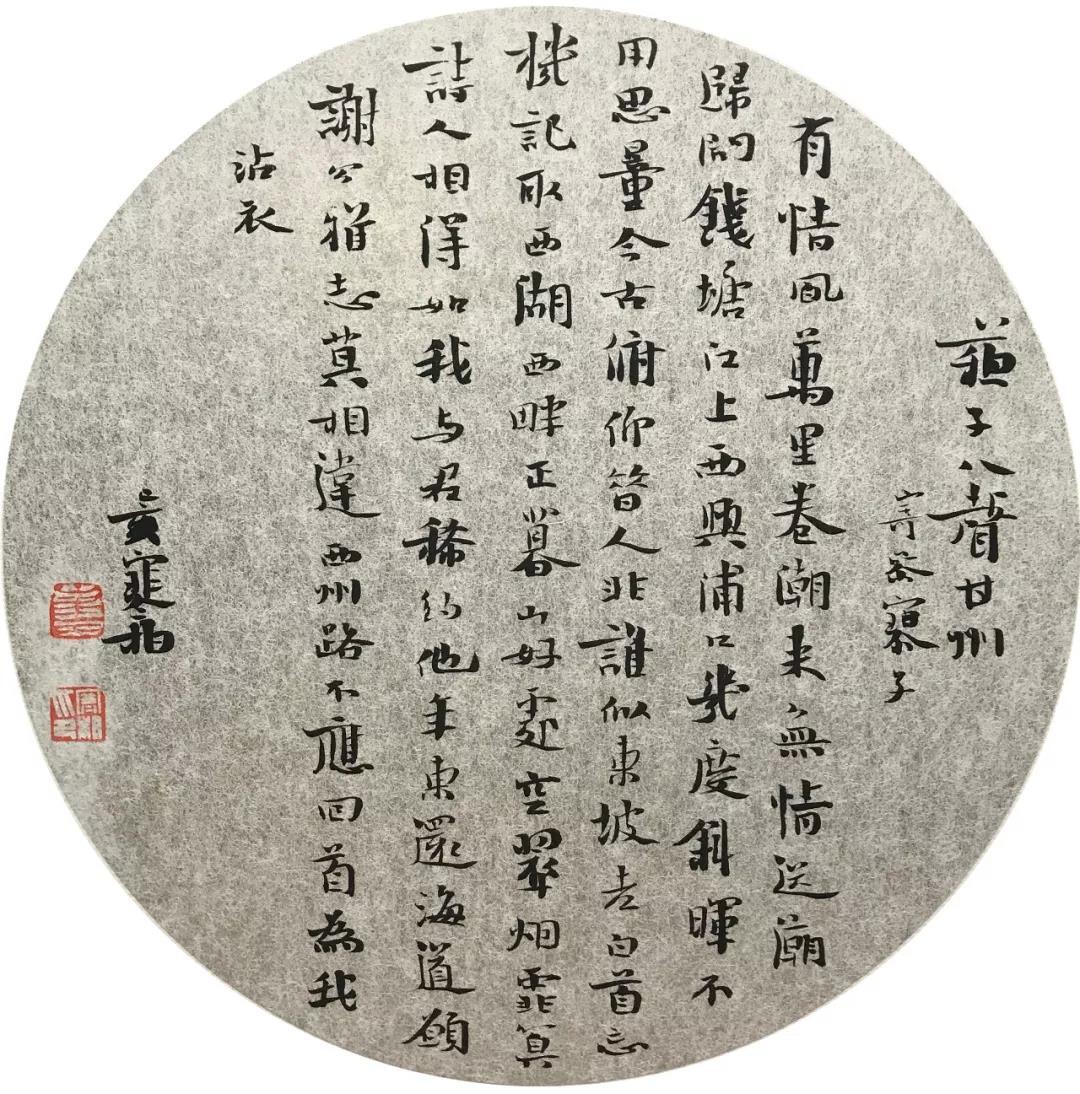 蘇子八聲甘州
寄參寥子
有情風萬里卷潮來無情送潮
歸問錢塘江上西興浦口幾度斜暉不
用思量今古俯仰昔人非誰似東坡老白首忘
機記取西湖西畔正暮山好處空翠烟霏算
詩人相得如我與君稀約他年東還海道願
謝公雅志莫相違西州路不應回首為我
沾衣